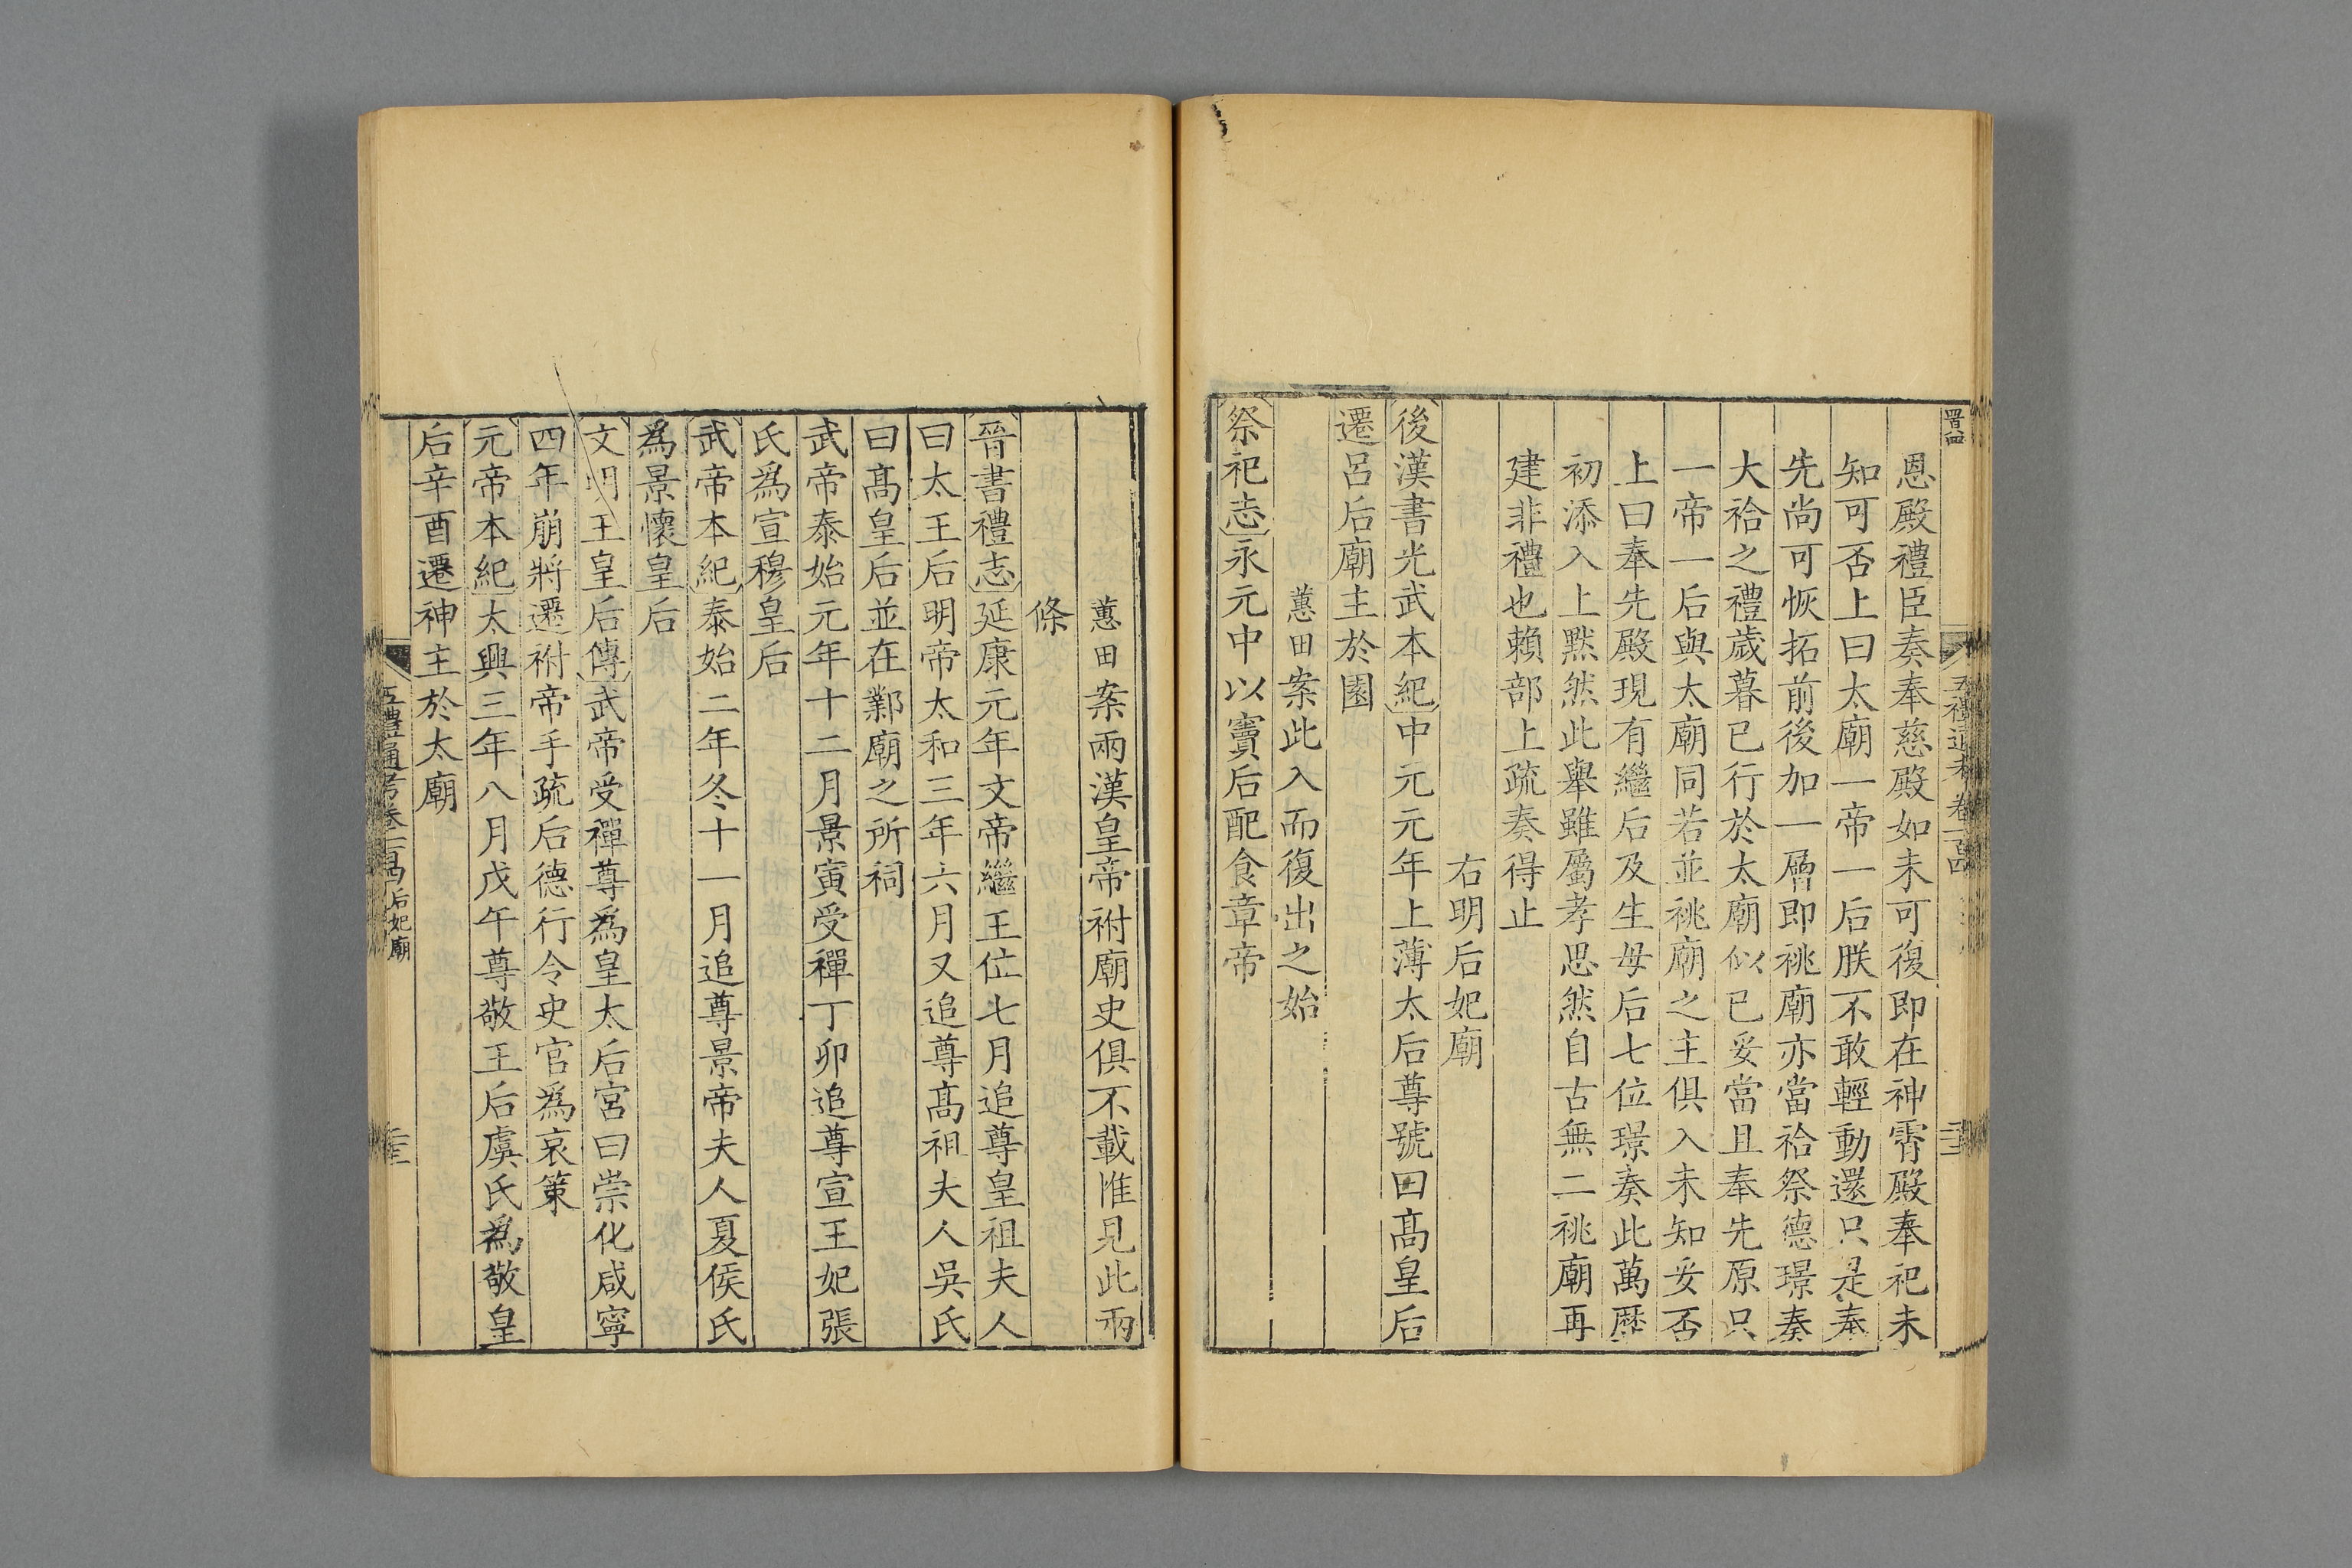 恩殿禮臣奏奉慈殿如未可復即在神霄殿奉祀未
知可否上曰太廟一帝一后朕不敢輕動還只是奉
先尚可恢拓前後加一層即祧廟亦當祫祭德璟奏
大祫之禮歲暮已行於太廟似已妥當且奉先原只
一帝一后與太廟同若並祧廟之主俱入未知妥否
上曰奉先殿現有繼后及生母后七位璟奏此萬歷
初添入上黙然此舉雖屬孝思然自古無二祧廟再
建非禮也賴部上疏奏得止
右明后妃廟
後漢書光武本紀中元元年上薄太后尊號曰髙皇后
遷呂后廟主於園
蕙田案此入而復出之始
祭祀志永元中以竇后配食章帝
蕙田案兩漢皇帝祔廟史俱不載惟見此兩
條
晉書禮志延康元年文帝繼王位七月追尊皇祖夫人
曰太王后明帝太和三年六月又追尊髙祖夫人吳氏
曰髙皇后並在鄴廟之所祠
武帝泰始元年十二月景寅受禪丁卯追尊宣王妃張
氏爲宣穆皇后
武帝本紀泰始二年冬十一月追尊景帝夫人夏侯氏
爲景懷皇后
文明王皇后傳武帝受禪尊爲皇太后宮曰崇化咸寧
四年崩將遷祔帝手疏后德行令史官爲哀策
元帝本紀太興三年八月戊午尊敬王后虞氏爲敬皇
后辛酉遷神主於太廟
五禮通考卷一百四 后妃廟